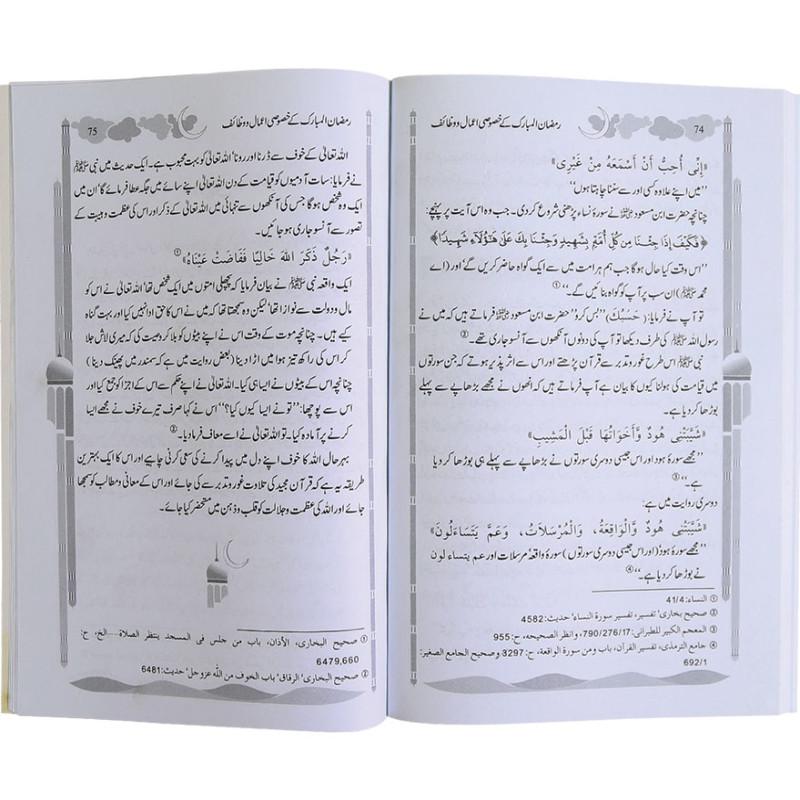 74
رمضان المبارک کے خصوصی اعمال و وظائف
«إِنِّی أُحِبُّ أَنْ أَسْمَعَهُ مِنْ غَيْرِی»
”میں اپنے علاوہ کسی اور سے سننا چاہتا ہوں“
چنانچہ حضرت ابن مسعود ؓ نے سورۂ نساء پڑھنی شروع کردی۔ جب وہ اس آیت پر پہنچے:
﴿فَكَيْفَ إِذَا جِئْنَا مِن كُلِّ أُمَّةٍ بِشَهِيدٍ وَجِئْنَا بِكَ عَلَىٰ هَٰؤُلَاءِ شَهِيدًا﴾
”اس وقت کیا حال ہوگا جب ہم ہر امت میں سے ایک گواہ حاضر کریں گے اور (اے
محمد ﷺ) ان سب پر آپ کو گواہ بنائیں گے۔“ ①
تو آپ نے فرمایا: (حَسْبُكَ) ”بس کرو“ حضرت ابن مسعود ؓ فرماتے ہیں کہ میں نے
رسول اللہ ﷺ کی طرف دیکھا تو آپ کی دونوں آنکھوں سے آنسو جاری تھے۔ ②
نبی ﷺ اس طرح غور و تدبر سے قرآن پڑھتے اور اس سے اثر پذیر ہوتے کہ جن سورتوں
میں قیامت کی ہولنا کیوں کا بیان ہے آپ فرماتے ہیں کہ انھوں نے مجھے بڑھاپے سے پہلے
بوڑھا کر دیا ہے۔
«شَيَّبَتْنِی هُودٌ وَّأَخَوَاتُهَا قَبْلَ الْمَشِيبِ»
”مجھے سورۂ ہود اور اس جیسی دوسری سورتوں نے بڑھاپے سے پہلے ہی بوڑھا کر دیا
ہے۔“ ③
دوسری روایت میں ہے:
«شَيَّبَتْنِی هُودٌ وَّالْوَاقِعَةُ، وَالْمُرْسَلَاتُ، وَعَمَّ يَتَسَاءَلُونَ»
”مجھے سورۂ ہود (اور اس جیسی دوسری سورتوں) سورۂ واقعہ، مرسلات اور عم یتساءلون
نے بوڑھا کر دیا ہے۔“ ④
① النساء:41/4
② صحیح بخاری، تفسیر، تفسیر سورة النساء، حدیث: 4582
③ المعجم الکبیر للطبرانی: 790/276/17، وانظر الصحیحه، ح: 955
④ جامع الترمذی، تفسیر القرآن، باب ومن سورة الواقعة، ح: 3297 وصحیح الجامع الصغیر:
692/1
75
رمضان المبارک کے خصوصی اعمال و وظائف
اللہ تعالیٰ کے خوف سے ڈرنا اور رونا، اللہ تعالیٰ کو بہت محبوب ہے۔ ایک حدیث میں نبی ﷺ
نے فرمایا: سات آدمیوں کو قیامت کے دن اللہ تعالیٰ اپنے سائے میں جگہ عطا فرمائے گا، ان میں
ایک وہ شخص ہوگا جس کی آنکھوں سے تنہائی میں اللہ تعالیٰ کے ذکر اور اس کی عظمت و ہیبت کے
تصور سے آنسو جاری ہو جائیں۔
«رَجُلٌ ذَكَرَ اللهَ خَالِيًا فَفَاضَتْ عَيْنَاهُ» ①
ایک واقعہ نبی ﷺ نے بیان فرمایا کہ پچھلی امتوں میں ایک شخص تھا، اللہ تعالیٰ نے اس کو
مال و دولت سے نوازا تھا، لیکن وہ سمجھتا تھا کہ میں نے اس کا حق ادا نہیں کیا اور بہت گناہ
کیے ہیں۔ چنانچہ موت کے وقت اس نے اپنے بیٹوں کو بلا کر وصیت کی کہ میری لاش جلا
کر اس کی راکھ تیز ہوا میں اڑا دینا (بعض روایت میں ہے کہ سمندر میں پھینک دینا)
چنانچہ اس کے بیٹوں نے ایسا ہی کیا۔ اللہ تعالیٰ نے اپنے حکم سے اس کے اجزا کو جمع کیا اور
اس سے پوچھا: ”تو نے ایسا کیوں کیا؟“ اس نے کہا صرف تیرے خوف نے مجھے ایسا
کرنے پر آمادہ کیا۔ تو اللہ تعالیٰ نے اسے معاف فرما دیا۔ ②
بہر حال اللہ کا خوف اپنے دل میں پیدا کرنے کی سعی کرنی چاہیے اور اس کا ایک بہترین
طریقہ یہ ہے کہ قرآن مجید کی تلاوت غور و تدبر سے کی جائے اور اس کے معانی و مطالب کو سمجھا
جائے اور اللہ کی عظمت و جلالت کو قلب و ذہن میں متحضر کیا جائے۔
① صحیح البخاری، الأذان، باب من جلس فی المسجد ینتظر الصلاة.....الخ، ح:
6479,660
② صحیح البخاری، الرقاق، باب الخوف من اللّٰه عزوجل، حدیث:6481